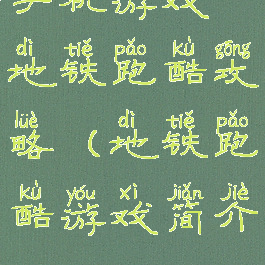 游戏
dì tiě pǎo kù gōng
地铁跑酷攻
lüè dì tiě pǎo
略（地铁跑
kù yóu xì jiǎn jiè
酷游戏简介